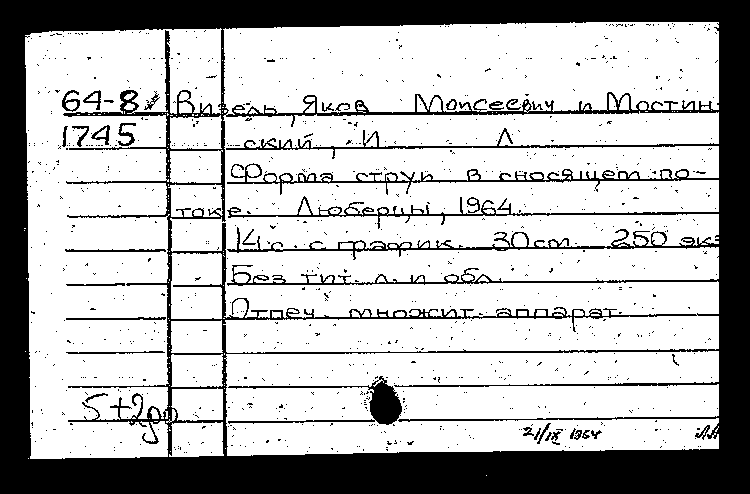 64-8 Визель, Яков Моисеевич и Мостин-
1745 ский, И Л
Форма струи в сносящем по-
токе. Люберцы, 1964.
14 с. с график. 30 cm. 250 экз
Без тит. л. и обл.
Отпеч. множит. аппарат.
21/IX 1964